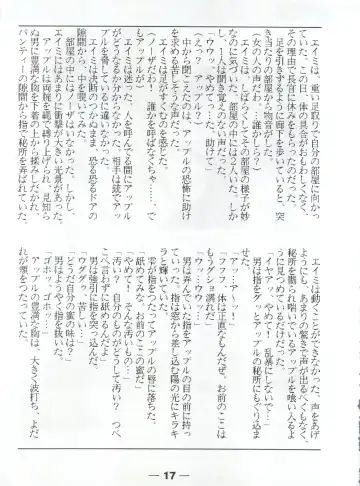 エイミは、重い足取りで自分の部屋に向かっ
ていた。この日、体の具合がおもわしくなく、
その理由で長官に休みをもらったのだった。
足を引きずるように廊下を歩いていると、突
き当たりの部屋から物音がした。
(女の人の声だわ、誰かしら？)
エイミは、しばらくしてその部屋の様子が妙
なのに気づいた。部屋の中には2人いた。しか
し、1人は聞き覚えのない声だった。
「ウウッ…。やめて…っ、助けて」
(えっ？)
中から聞こえたのは、アップルの恐怖に助け
を求める苦しそうな声だった。
エイミは足がすくむのを感じた。
(ノ、ノザだわ！　誰かを呼ばなくちゃ…、で
もアップルが……)
エイミは迷った。人を呼んでる間にアップル
がどうなるか分からなかった。相手は銃でアッ
プルを脅しているに違いなかった。
エイミは決断のつかぬまま、恐る恐るドアの
隙間から、中を覗いてみた。
部屋の中にはノザはいなかった。しかし、
エイミにはあまりに衝撃が大きい光景があった。
アップルは両腕を縄で縛り上げられ、見知ら
ぬ男に豊満な胸を下着の上から揉みしだかれ、
パンティーの隙間から指で秘所を弄ばれていた。
エイミは動くことができなかった。声をあげ
ようにも、あまりの驚きで声が出るべくもなく、
秘所を嬲られ喘いでいるアップルを喰い入るよ
うに見つめているだけだった。
「イヤァ、やめて！　乱暴にしないで…！」
男は指をグッとアップルの秘所にもぐり込ま
せた。
「アッ、ア〜ッ！」
「フフ…、体は正直なもんだぜ。お前のここは
もうグショ濡れだ」
「ウッ…ウウッ…」
男は弄んでいた指をアップルの目の前に持っ
ていった。指は窓から差し込む陽の光にキラキ
ラと輝いていた。
雫が指をつたって、アップルの唇に落ちた。
「舐めてみろ、お前のここの蜜だ」
「やめて！　そんな汚いもの…」
「汚い？　自分のものがどうして汚い？　つべ
こべ言わずに舐めるんだよ」
男は強引に指を突っ込んだ。
「ウググッ、苦しい…」
「どうだ自分の蜜の味は？」
男はようやく指を抜いた。
「ゴホッ、ゴホッ…」
アップルの豊満な胸は、大きく波打ち、よだ
れが頬をつたっていた。
— 17 —